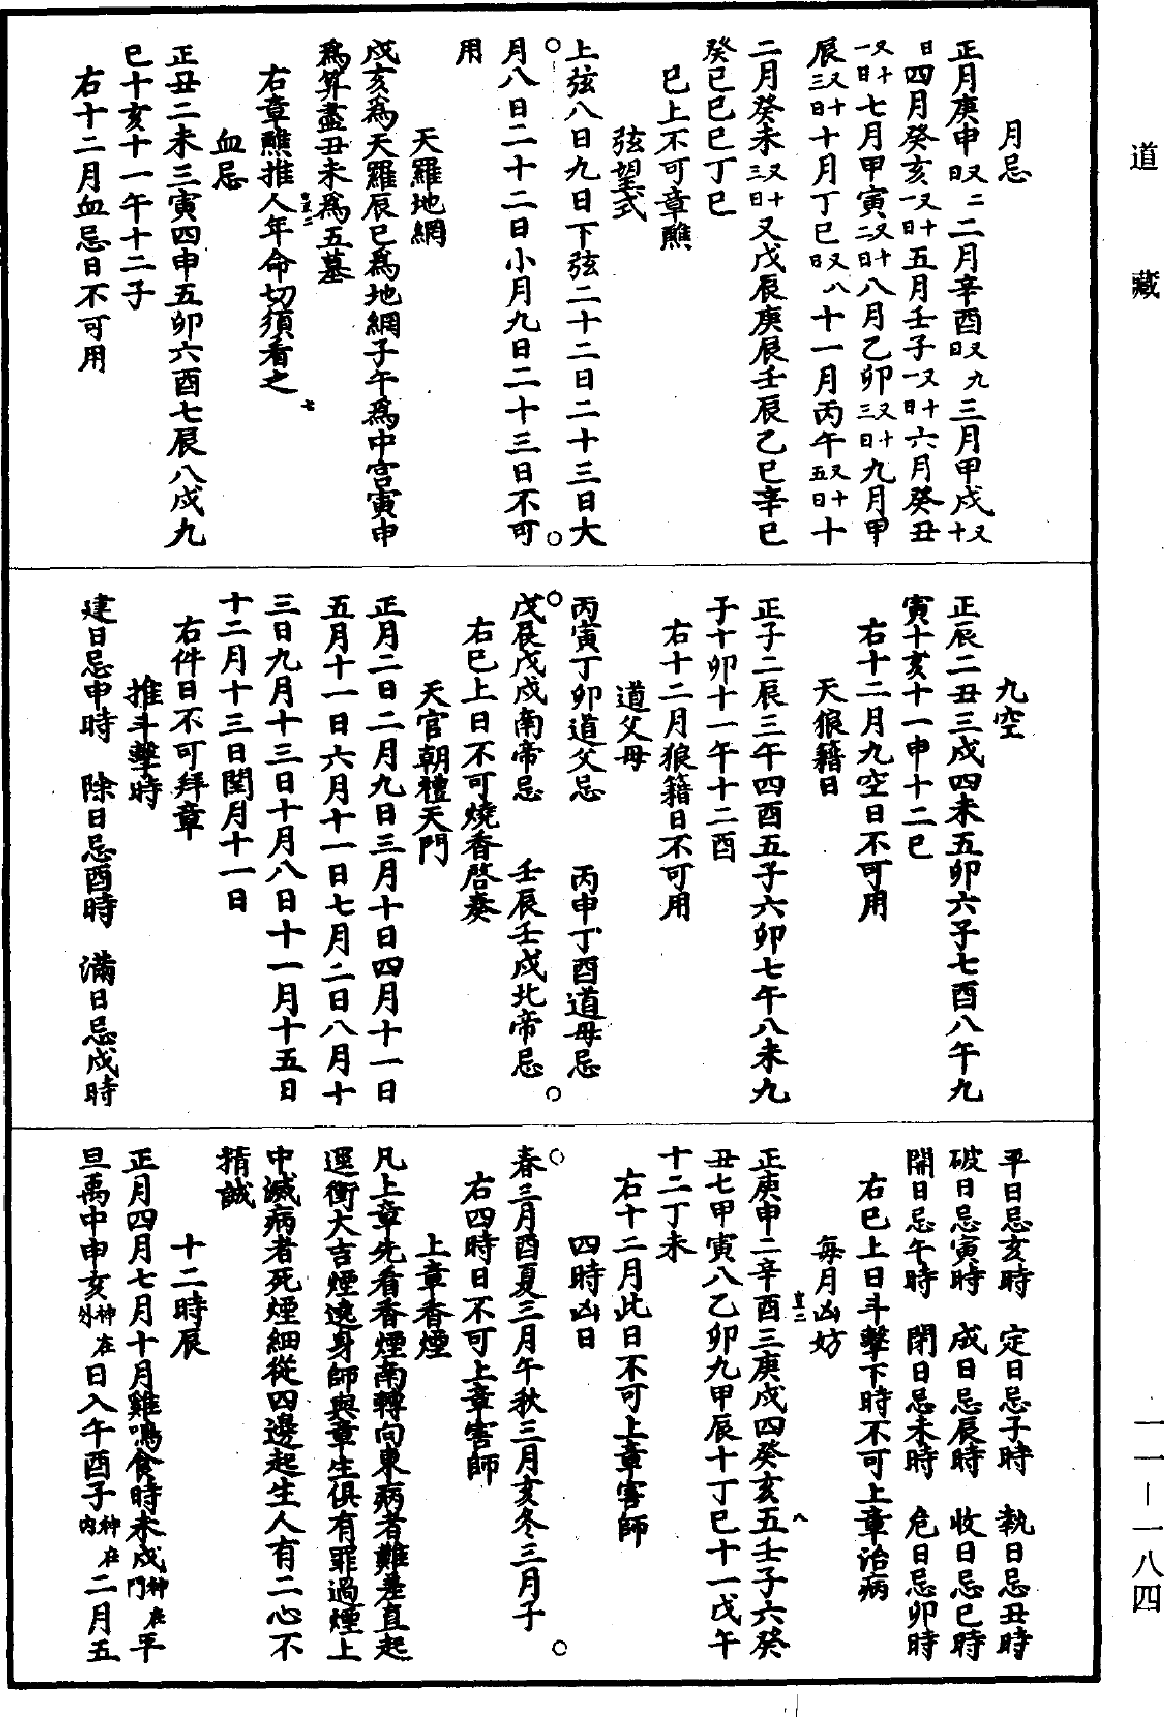 道藏
月忌
正月庚申又二日二月辛酉又九日三月甲戌又十
日四月癸亥又十一日五月壬子又十一日六月癸丑
又十一日七月甲寅又十二日八月乙卯又十三日九月甲
辰又十三日十月丁巳又八日十一月丙午又十五日十
二月癸未又十三日又戊辰庚辰壬辰乙巳辛巳
癸巳己巳丁巳
已上不可章醮
弦望式
上弦八日九日下弦二十二日二十三日大
月八日二十二日小月九日二十三日不可
用
天羅地網
戌亥為天羅辰巳為地網子午為中宮寅申
為算盡丑未為五墓
右章醮推人年命切須看之
血忌
正丑二未三寅四申五卯六酉七辰八戌九
巳十亥十一午十二子
右十二月血忌日不可用
九空
正辰二丑三戌四未五卯六子七酉八午九
寅十亥十一申十二巳
右十二月九空日不可用
天狼籍日
正子二辰三午四酉五子六卯七午八未九
子十卯十一午十二酉
右十二月狼籍日不可用
道父母
丙寅丁卯道父忌 丙申丁酉道母忌
戊辰戊戌南帝忌 壬辰壬戌北帝忌
右已上日不可燒香啓奏
天官朝禮天門
正月二日二月九日三月十日四月十一日
五月十一日六月十一日七月二日八月十
三日九月十三日十月八日十一月十五日
十二月十三日閏月十一日
右件日不可拜章
推斗擊時
建日忌申時 除日忌酉時 滿日忌戌時
平日忌亥時 定日忌子時 執日忌丑時
破日忌寅時 成日忌辰時 收日忌巳時
開日忌午時 閉日忌未時 危日忌卯時
右已上日斗擊下時不可上章治病
每月凶妨
正庚申二辛酉三庚戌四癸亥五壬子六癸
丑七甲寅八乙卯九甲辰十丁巳十一戊午
十二丁未
右十二月此日不可上章害師
四時凶日
春三月酉夏三月午秋三月亥冬三月子
右四時日不可上章害師
上章香煙
凡上章先看香煙南轉向東病者難差直起
逕衝大吉煙遶身師與章生俱有罪過煙上
中滅病者死煙細從四邊起生人有二心不
精誠
十二時辰
正月四月七月十月雞鳴食時未戌神在門平
旦禺中申亥神在外日入午酉子神在內二月五
一一—一八四